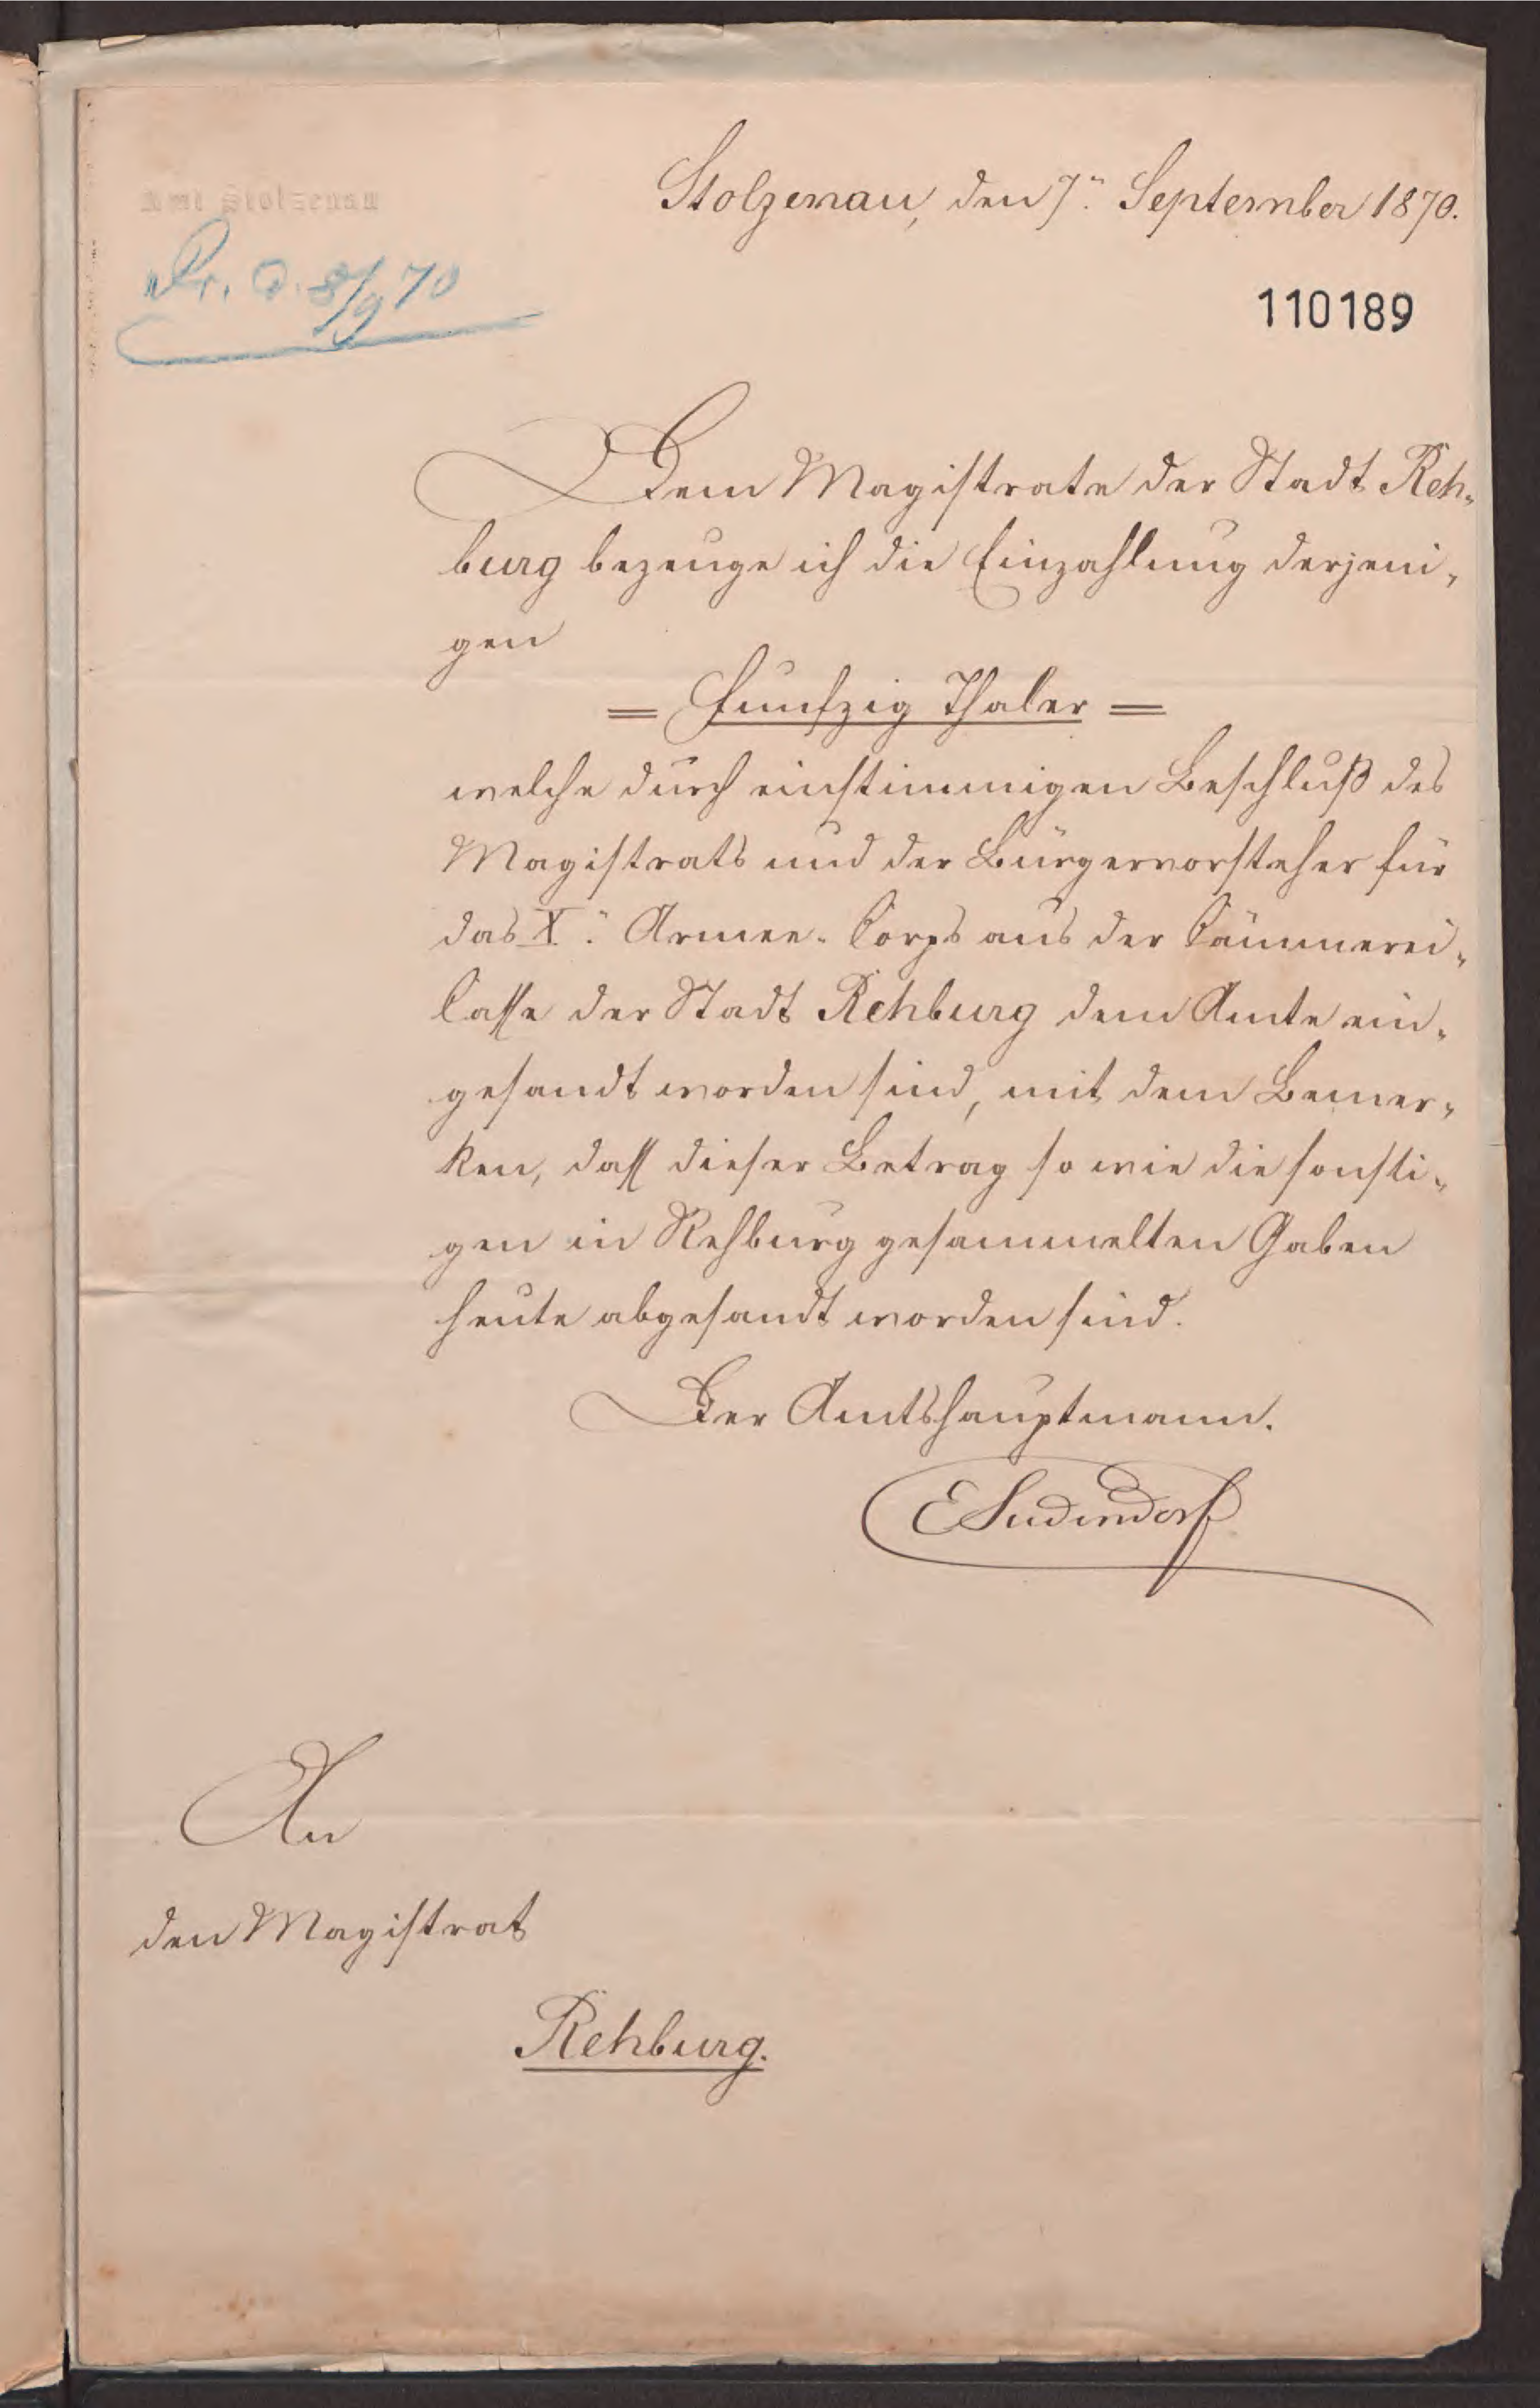 Amt Stolzenau
Stolzenau, den 7. September 1870.
Pr. d. 8/9 70
110189
Dem Magistrate der Stadt Reh-
burg bezeuge ich die Einzahlung derjeni-
gen
= Funfzig Thaler =
welche durch einstimmigen Beschluß des
Magistrats und der Bürgervorsteher für
das X. Armee-Corps aus der Cämmerei-
Casse der Stadt Rehburg dem Amte ein-
gesandt worden sind, mit dem Bemer-
ken, dass dieser Betrag so wie die sonsti-
gen in Rehburg gesammelten Gaben
heute abgesandt worden sind.
Der Amtshauptmann.
ESudendorf
An
den Magistrat
Rehburg.